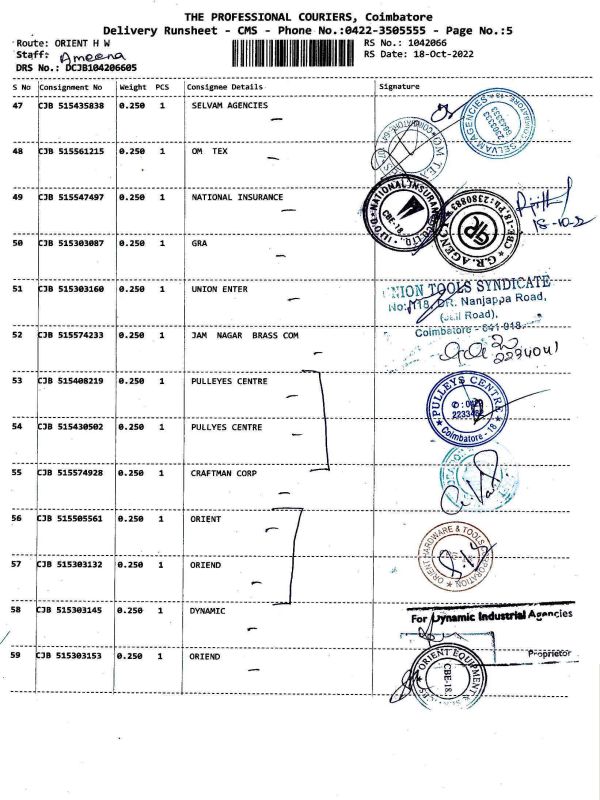 THE PROFESSIONAL COURIERS, Coimbatore
Delivery Runsheet - CMS - Phone No.:0422-3505555 - Page No.:5
Route: ORIENT H W
RS No.: 1042066
Staff: Ameena
RS Date: 18-Oct-2022
DRS No.: DCJB104206605
S No Consignment No Weight PCS Consignee Details Signature
47 CJB 515435838 0.250 1 SELVAM AGENCIES
SELVAM AGENCIES
48 CJB 515561215 0.250 1 OM TEX
OM TEX
49 CJB 515547497 0.250 1 NATIONAL INSURANCE
NATIONAL INSURANCE
CBE-18
18-10-22
50 CJB 515303087 0.250 1 GRA
G.R. AGENCY
CBE-18. Ph: 2380883
GR
51 CJB 515303160 0.250 1 UNION ENTER
UNION TOOLS SYNDICATE
No: 118, DR. Nanjappa Road,
(Jail Road),
Coimbatore - 641 018.
52 CJB 515574233 0.250 1 JAM NAGAR BRASS COM
2234041
53 CJB 515408219 0.250 1 PULLEYES CENTRE
PULLEYS CENTRE
Coimbatore - 18
54 CJB 515430502 0.250 1 PULLYES CENTRE
55 CJB 515574928 0.250 1 CRAFTMAN CORP
56 CJB 515505561 0.250 1 ORIENT
ORIENT HARDWARE & TOOLS CORPORATION
57 CJB 515303132 0.250 1 ORIEND
58 CJB 515303145 0.250 1 DYNAMIC
For Dynamic Industrial Agencies
Proprietor
59 CJB 515303153 0.250 1 ORIEND
ORIENT EQUIPMENT
CBE-18